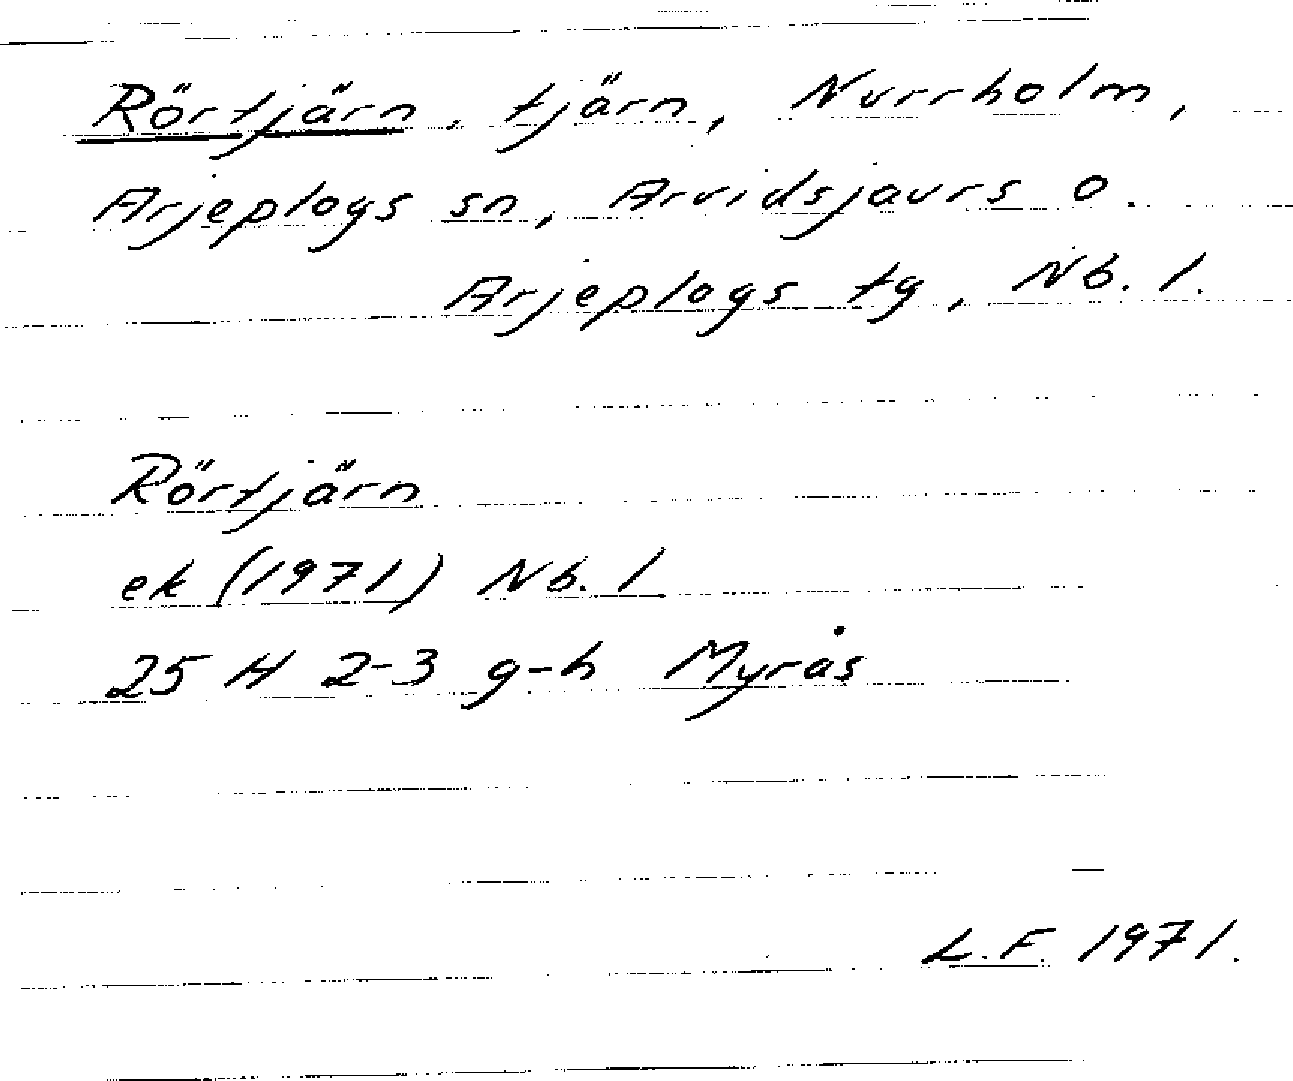 Rörtjärn, tjärn, Nurrholm,
Arjeplogs sn, Arvidsjaurs o.
Arjeplogs tg, Nb. l.
Rörtjärn
ek (1971) Nb. l
25 H 2-3 g-h Myrås
L.F. 1971.